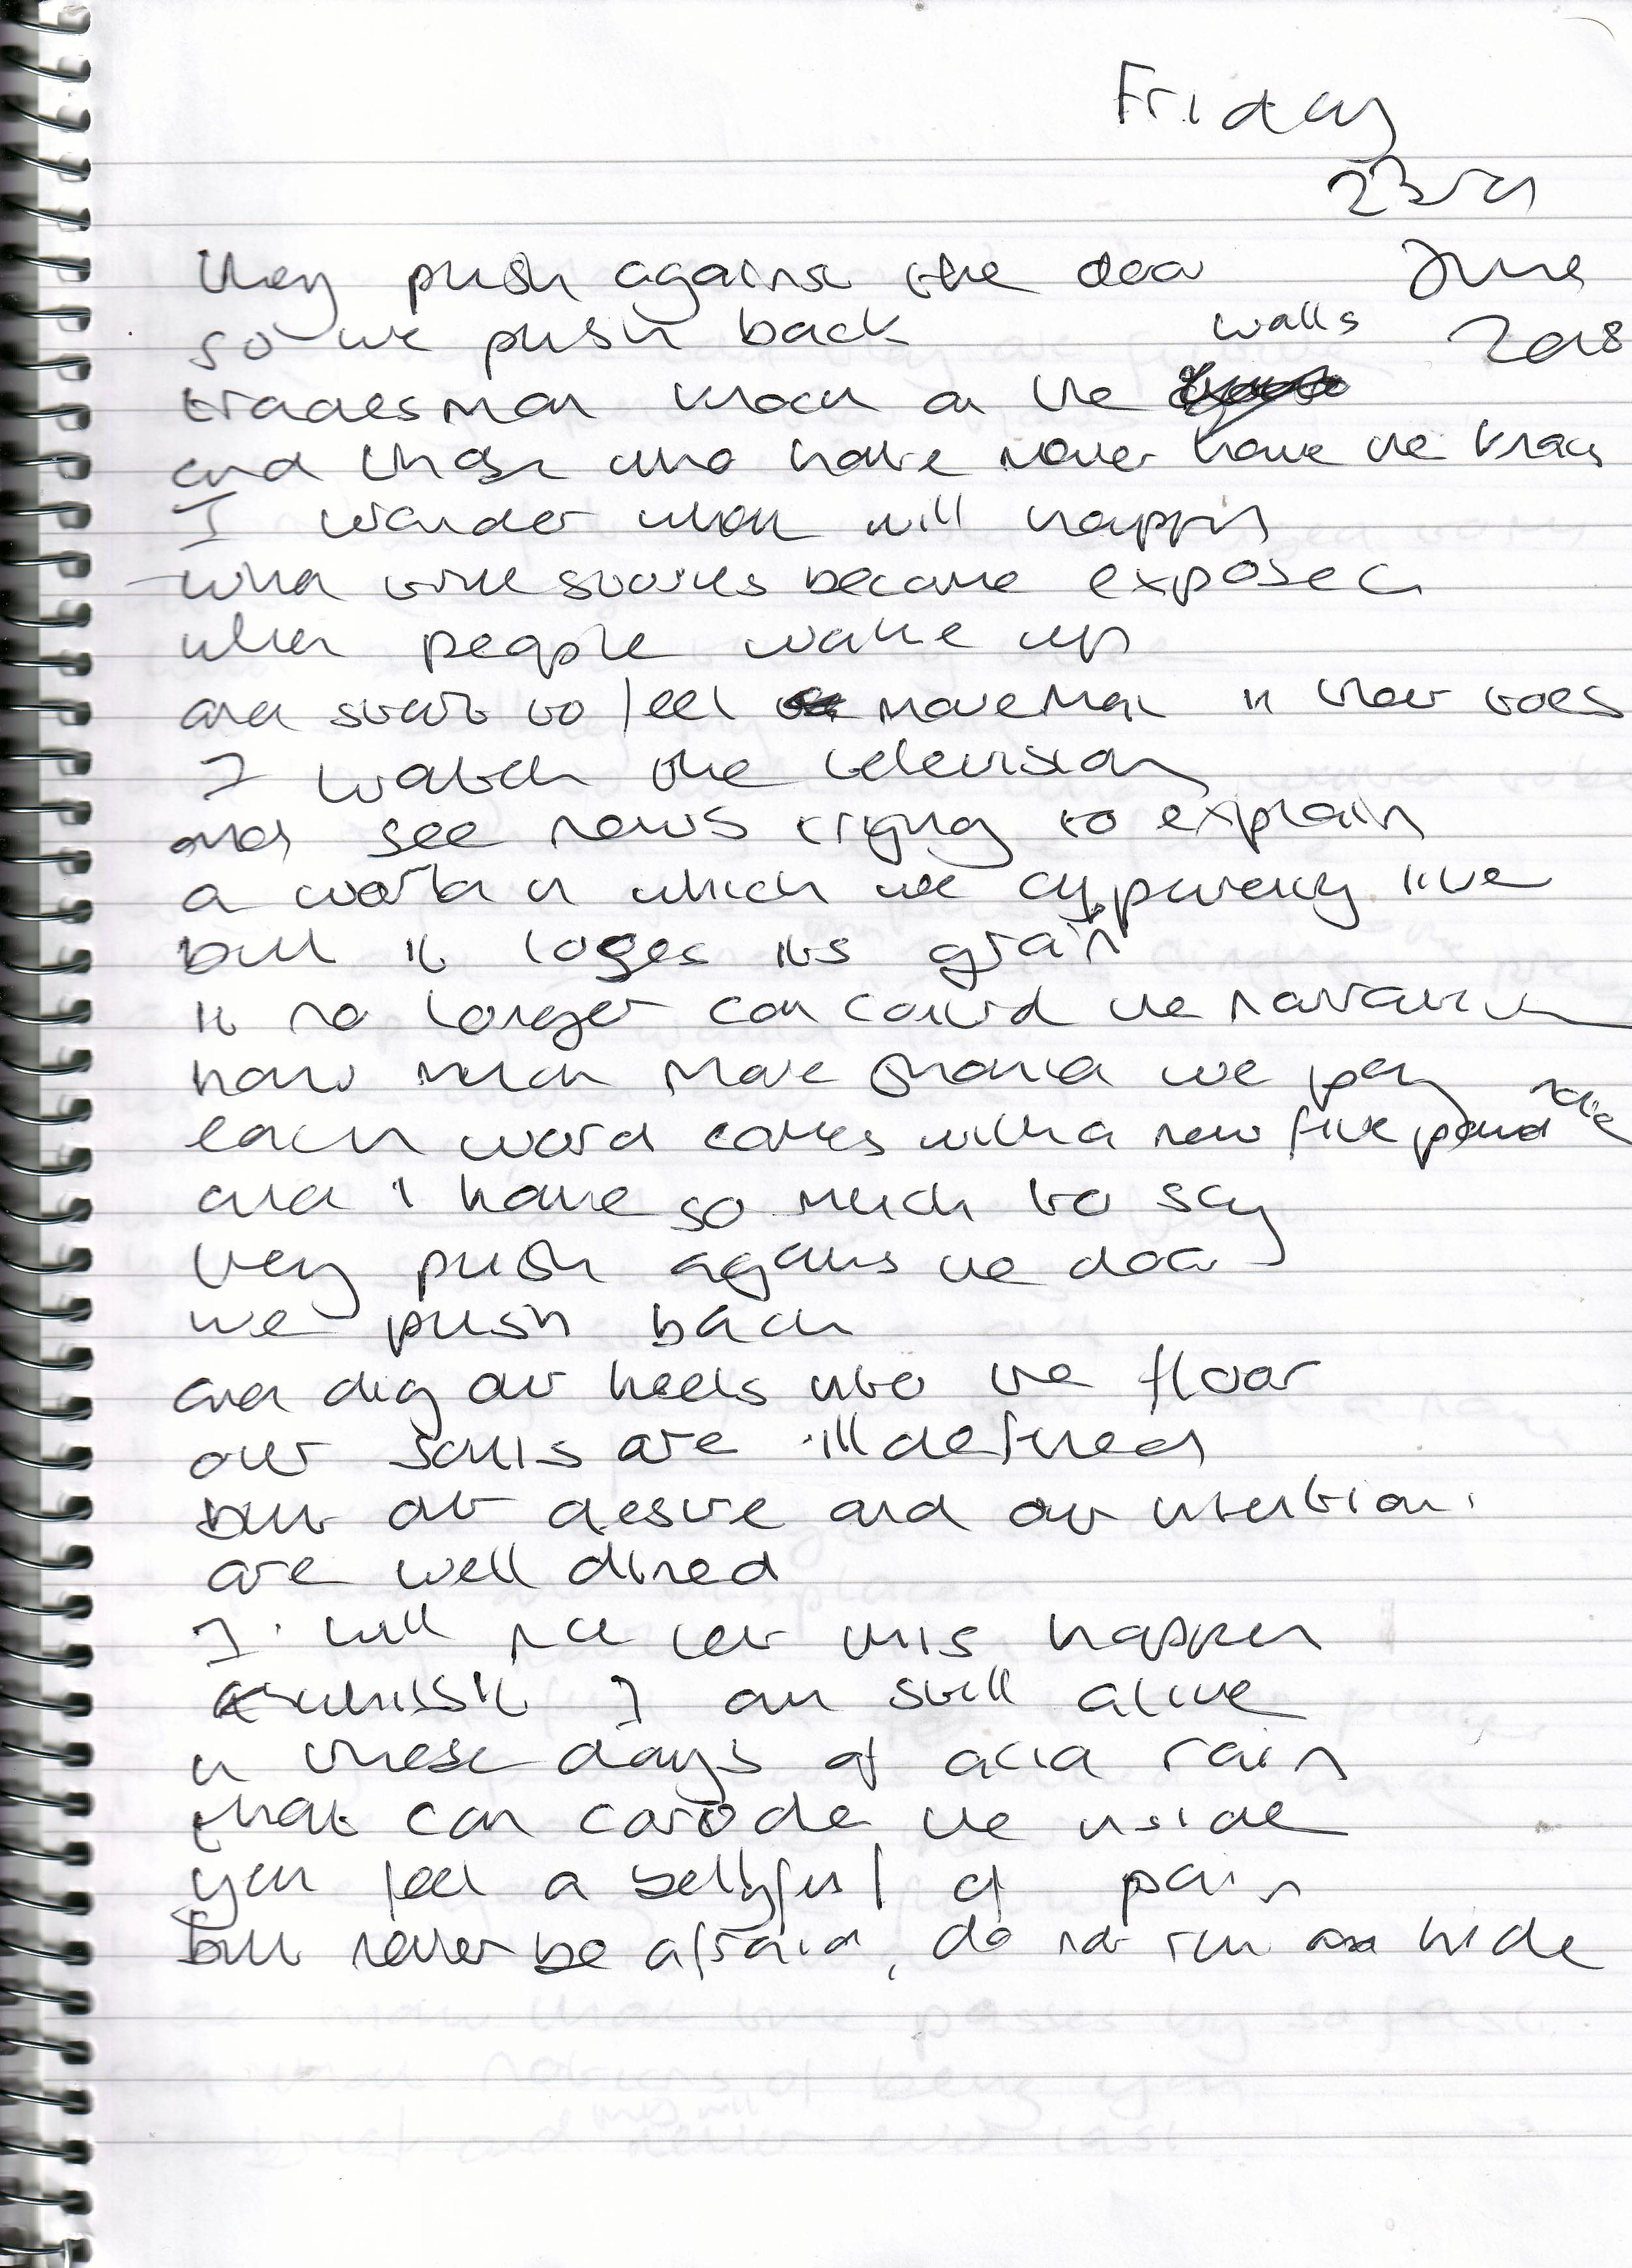 Friday
23rd
June
2018
they push against the door
so we push back
walls
tradesman knock on the
and those who have never have the knack
I wonder what will happen
what time stories become exposed
when people wake up
and start to feel movement in their toes
I watch the television
and see news trying to explain
a world in which we apparently live
but it loses its grain
it no longer can control the narrative
how much more we pay
each word comes with a new five pound note
and I have so much to say
they push against the door
we push back
and dig our heels into the floor
our souls are ill defined
but our desire and our intention
are well dined
I will not let this happen
whilst I am still alive
in these days of acid rain
that can corode the inside
you feel a bellyful of pain
but never be afraid, do not run and hide